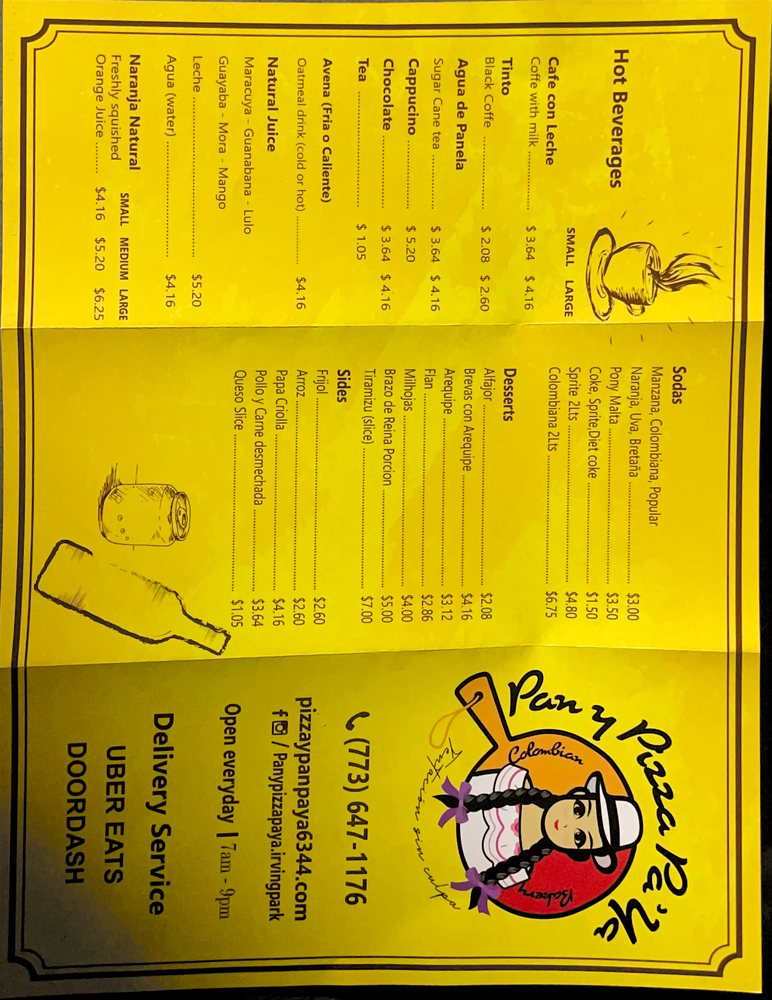 Hot Beverages
SMALL LARGE
Cafe con Leche
Coffe with milk ........ $ 3.64 $ 4.16
Tinto
Black Coffe ........ $ 2.08 $ 2.60
Agua de Panela
Sugar Cane tea ........ $ 3.64 $ 4.16
Cappucino ........ $ 5.20
Chocolate ........ $ 3.64 $ 4.16
Tea ........ $ 1.05
Avena (Fria o Caliente)
Oatmeal drink (cold or hot) ........ $4.16
Natural Juice
Maracuya - Guanabana - Lulo
Guayaba - Mora - Mango
Leche ........ $5.20
Agua (water) ........ $4.16
SMALL MEDIUM LARGE
Naranja Natural
Freshly squished
Orange Juice ........ $4.16 $5.20 $6.25
Sodas
Manzana, Colombiana, Popular
Naranja, Uva, Bretaña ........ $3.00
Pony Malta ........ $3.50
Coke, Sprite,Diet coke ........ $1.50
Sprite 2Lts ........ $4.80
Colombiana 2Lts ........ $6.75
Desserts
Alfajor ........ $2.08
Brevas con Arequipe ........ $4.16
Arequipe ........ $3.12
Flan ........ $2.86
Milhojas ........ $4.00
Brazo de Reina Porcion ........ $5.00
Tiramizu (slice) ........ $7.00
Sides
Frijol ........ $2.60
Arroz ........ $2.60
Papa Criolla ........ $4.16
Pollo y Carne desmechada ........ $3.64
Queso Slice ........ $1.05
Pan y Pizza Pa' Ya
Colombian
Bakery
Tentacion sin culpa
(773) 647-1176
pizzaypanpaya6344.com
f / Panypizzapaya.irvingpark
Open everyday | 7am - 9pm
Delivery Service
UBER EATS
DOORDASH